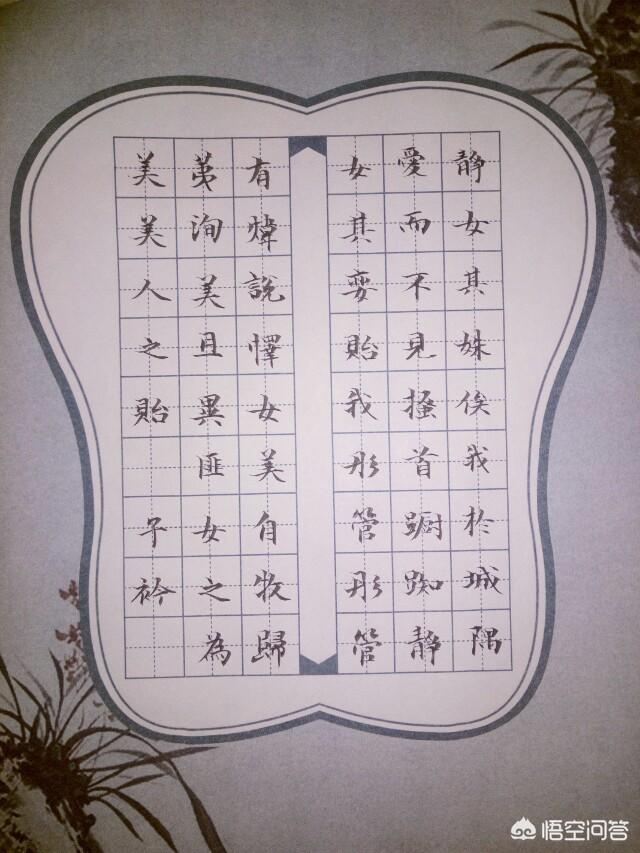 静女其姝俟我於城隅
愛而不見搔首蹰踟静
女其娈貽我彤管彤管
有煒説懌女美自牧歸
荑洵美且異匪女之為
美美人之貽 子衿
悟空问答